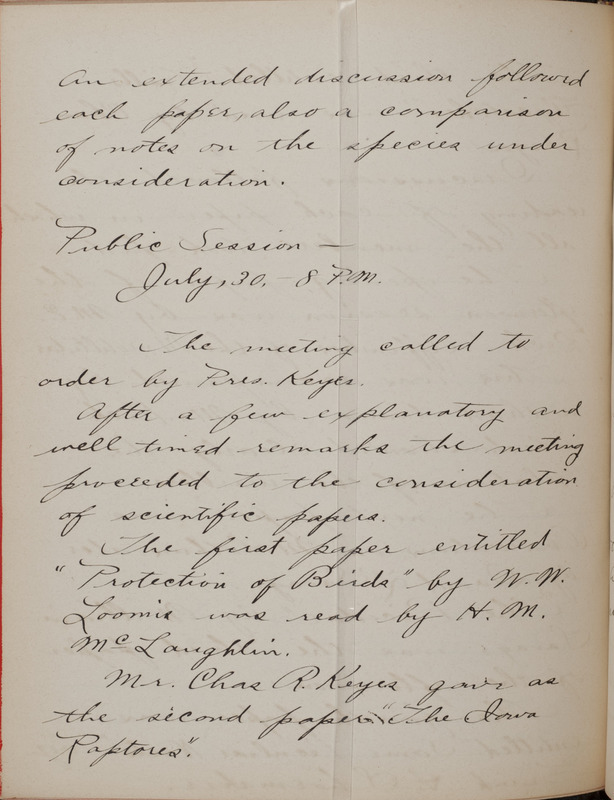 An extended discussion followed
each paper, also a comparison
of notes on the species under
consideration.
Public Session —
July, 30, - 8 P.M.
The meeting called to
order by Pres. Keyes.
After a few explanatory and
well timed remarks the meeting
proceeded to the consideration
of scientific papers.
The first paper entitled
"Protection of Birds" by W. W.
Loomis was read by H. M.
McLaughlin.
Mr. Chas R. Keyes gave as
the second paper "The Iowa
Raptores".